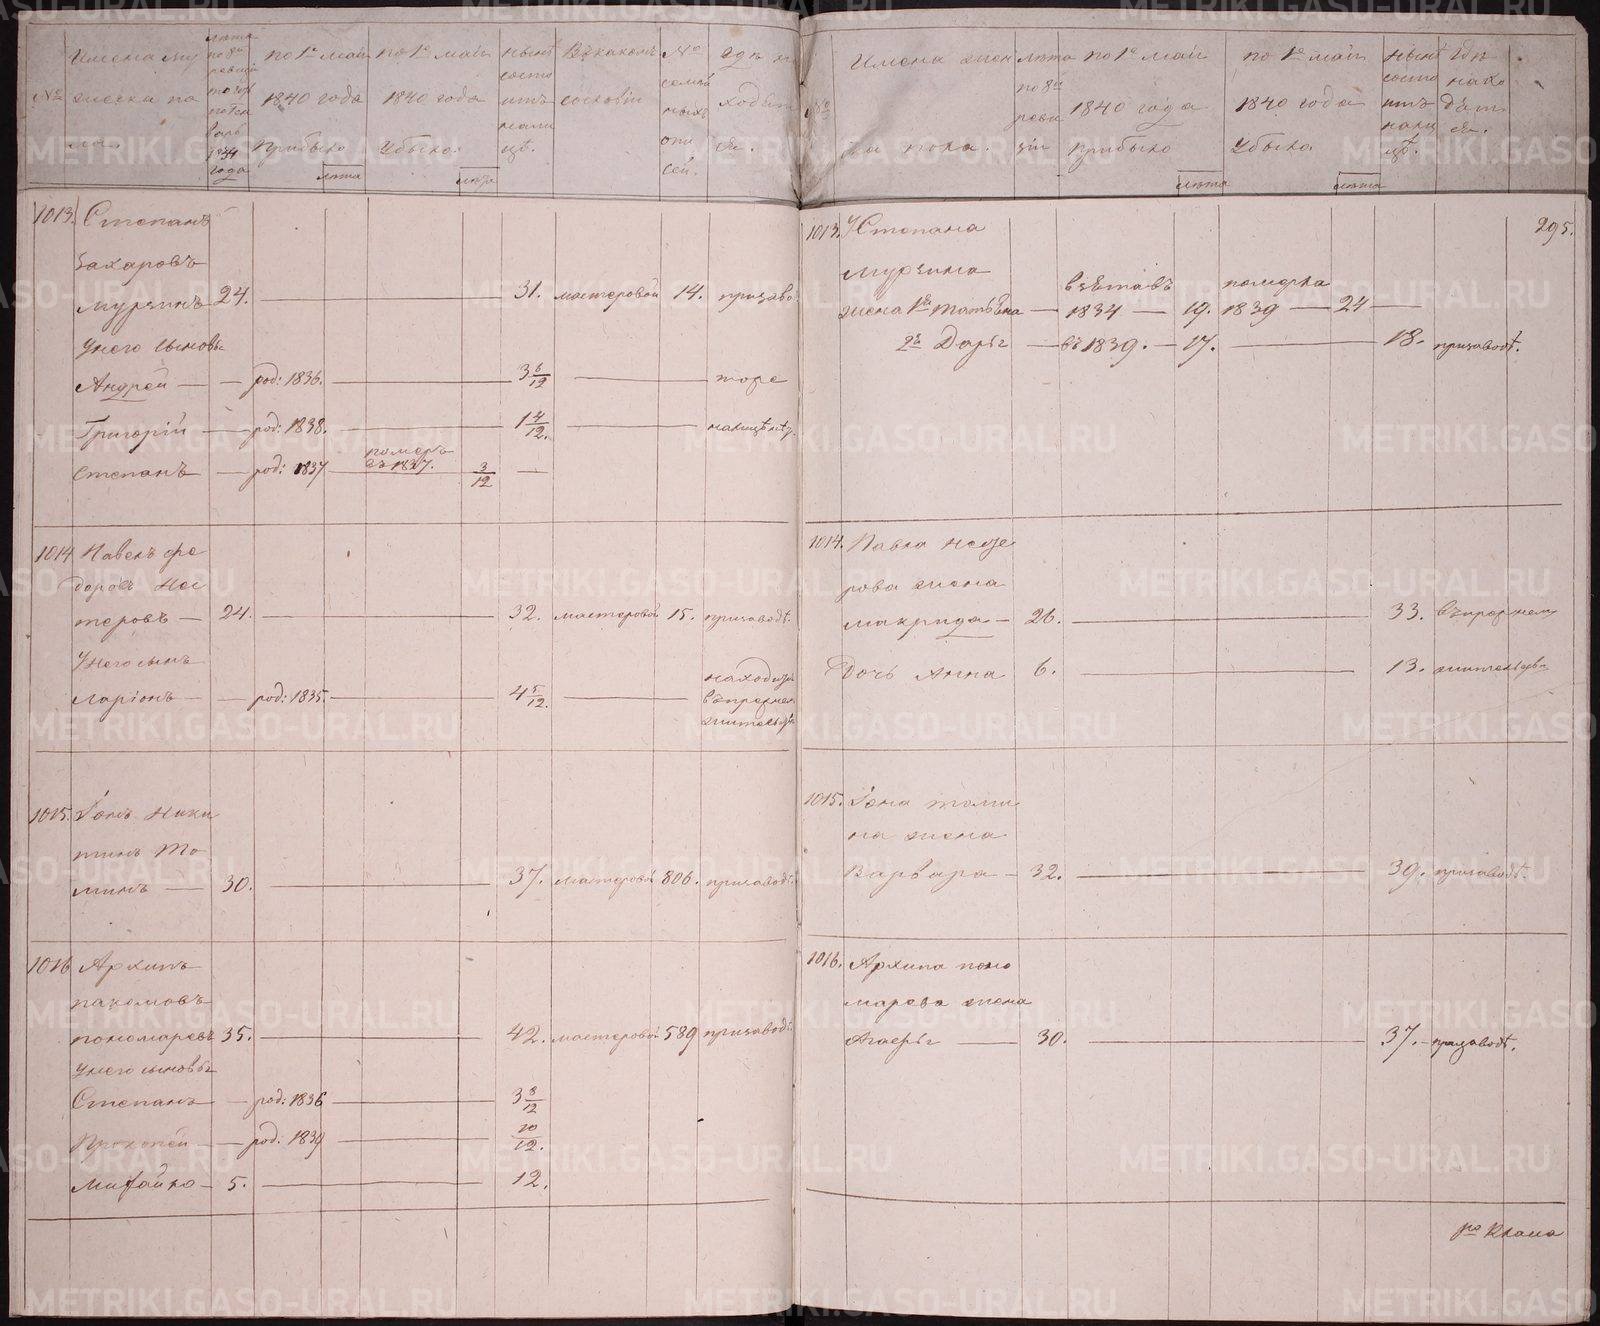 №
Имена му
жеска по
ла.
лѣта
по 8й
ревизіи
1834
года
по 1е маія
1840 года
прибыло
лѣта
по 1е маія
1840 года
Убыло.
лѣта
нынѣ
состо
итъ
налиц
цѣ.
Въ какомъ
сословіи
№
семей
ныхъ
опи
сей.
гдѣ на
ходит
ся.
1013. Степанъ
Захаровъ
Мурзинъ 24. 31. мастеровой 14. призаво
У него сыновья
Андрей род: 1836. 3 8/12 тоже
Григорій род: 1838. 1 4/12.
Степанъ род: 1837 померъ въ 1837. 3/12
1014 Павелъ Фе
доровъ Нес
теровъ 24. 32. мастеровой 15. призаводѣ.
У него сынъ
Ларіонъ род: 1835. 4 5/12.
находится
въ прежнем
жительствѣ
1015. Іонъ Ники
тинъ То
минъ 30. 37. мастеровой 806. призаводѣ.
1016 Архипъ
пахомовъ
пономаревъ 35. 42. мастеровой 589 призаводѣ.
У него сыновья
Степанъ род: 1836 3 8/12
Прокопей род: 1839 10/12.
Михайло 5. 12.
№
Имена жен
ска пола.
лѣта
по 8й
реви
зіи
по 1е маія
1840 года
прибыло
лѣта
по 1е маія
1840 года
Убыло
лѣта
нынѣ
состо
итъ
налиц
цѣ.
гдѣ
нахо
дит
ся.
295.
1013. У Степана
Мурзина
жена 1я Татьяна взята въ 1834 19. померла 1839 24
2я Дарья въ 1839. 17. 18. призаводѣ.
1014. Павла Несте
рова жена
Макрида 26. 33. въ прежнем
Дочь Анна 6. 13. жительствѣ
1015. Іона Томи
на жена
Варвара 32. 39. призаводѣ.
1016. Архипа поно
марева жена
Агафья 30. 37. призаводѣ.